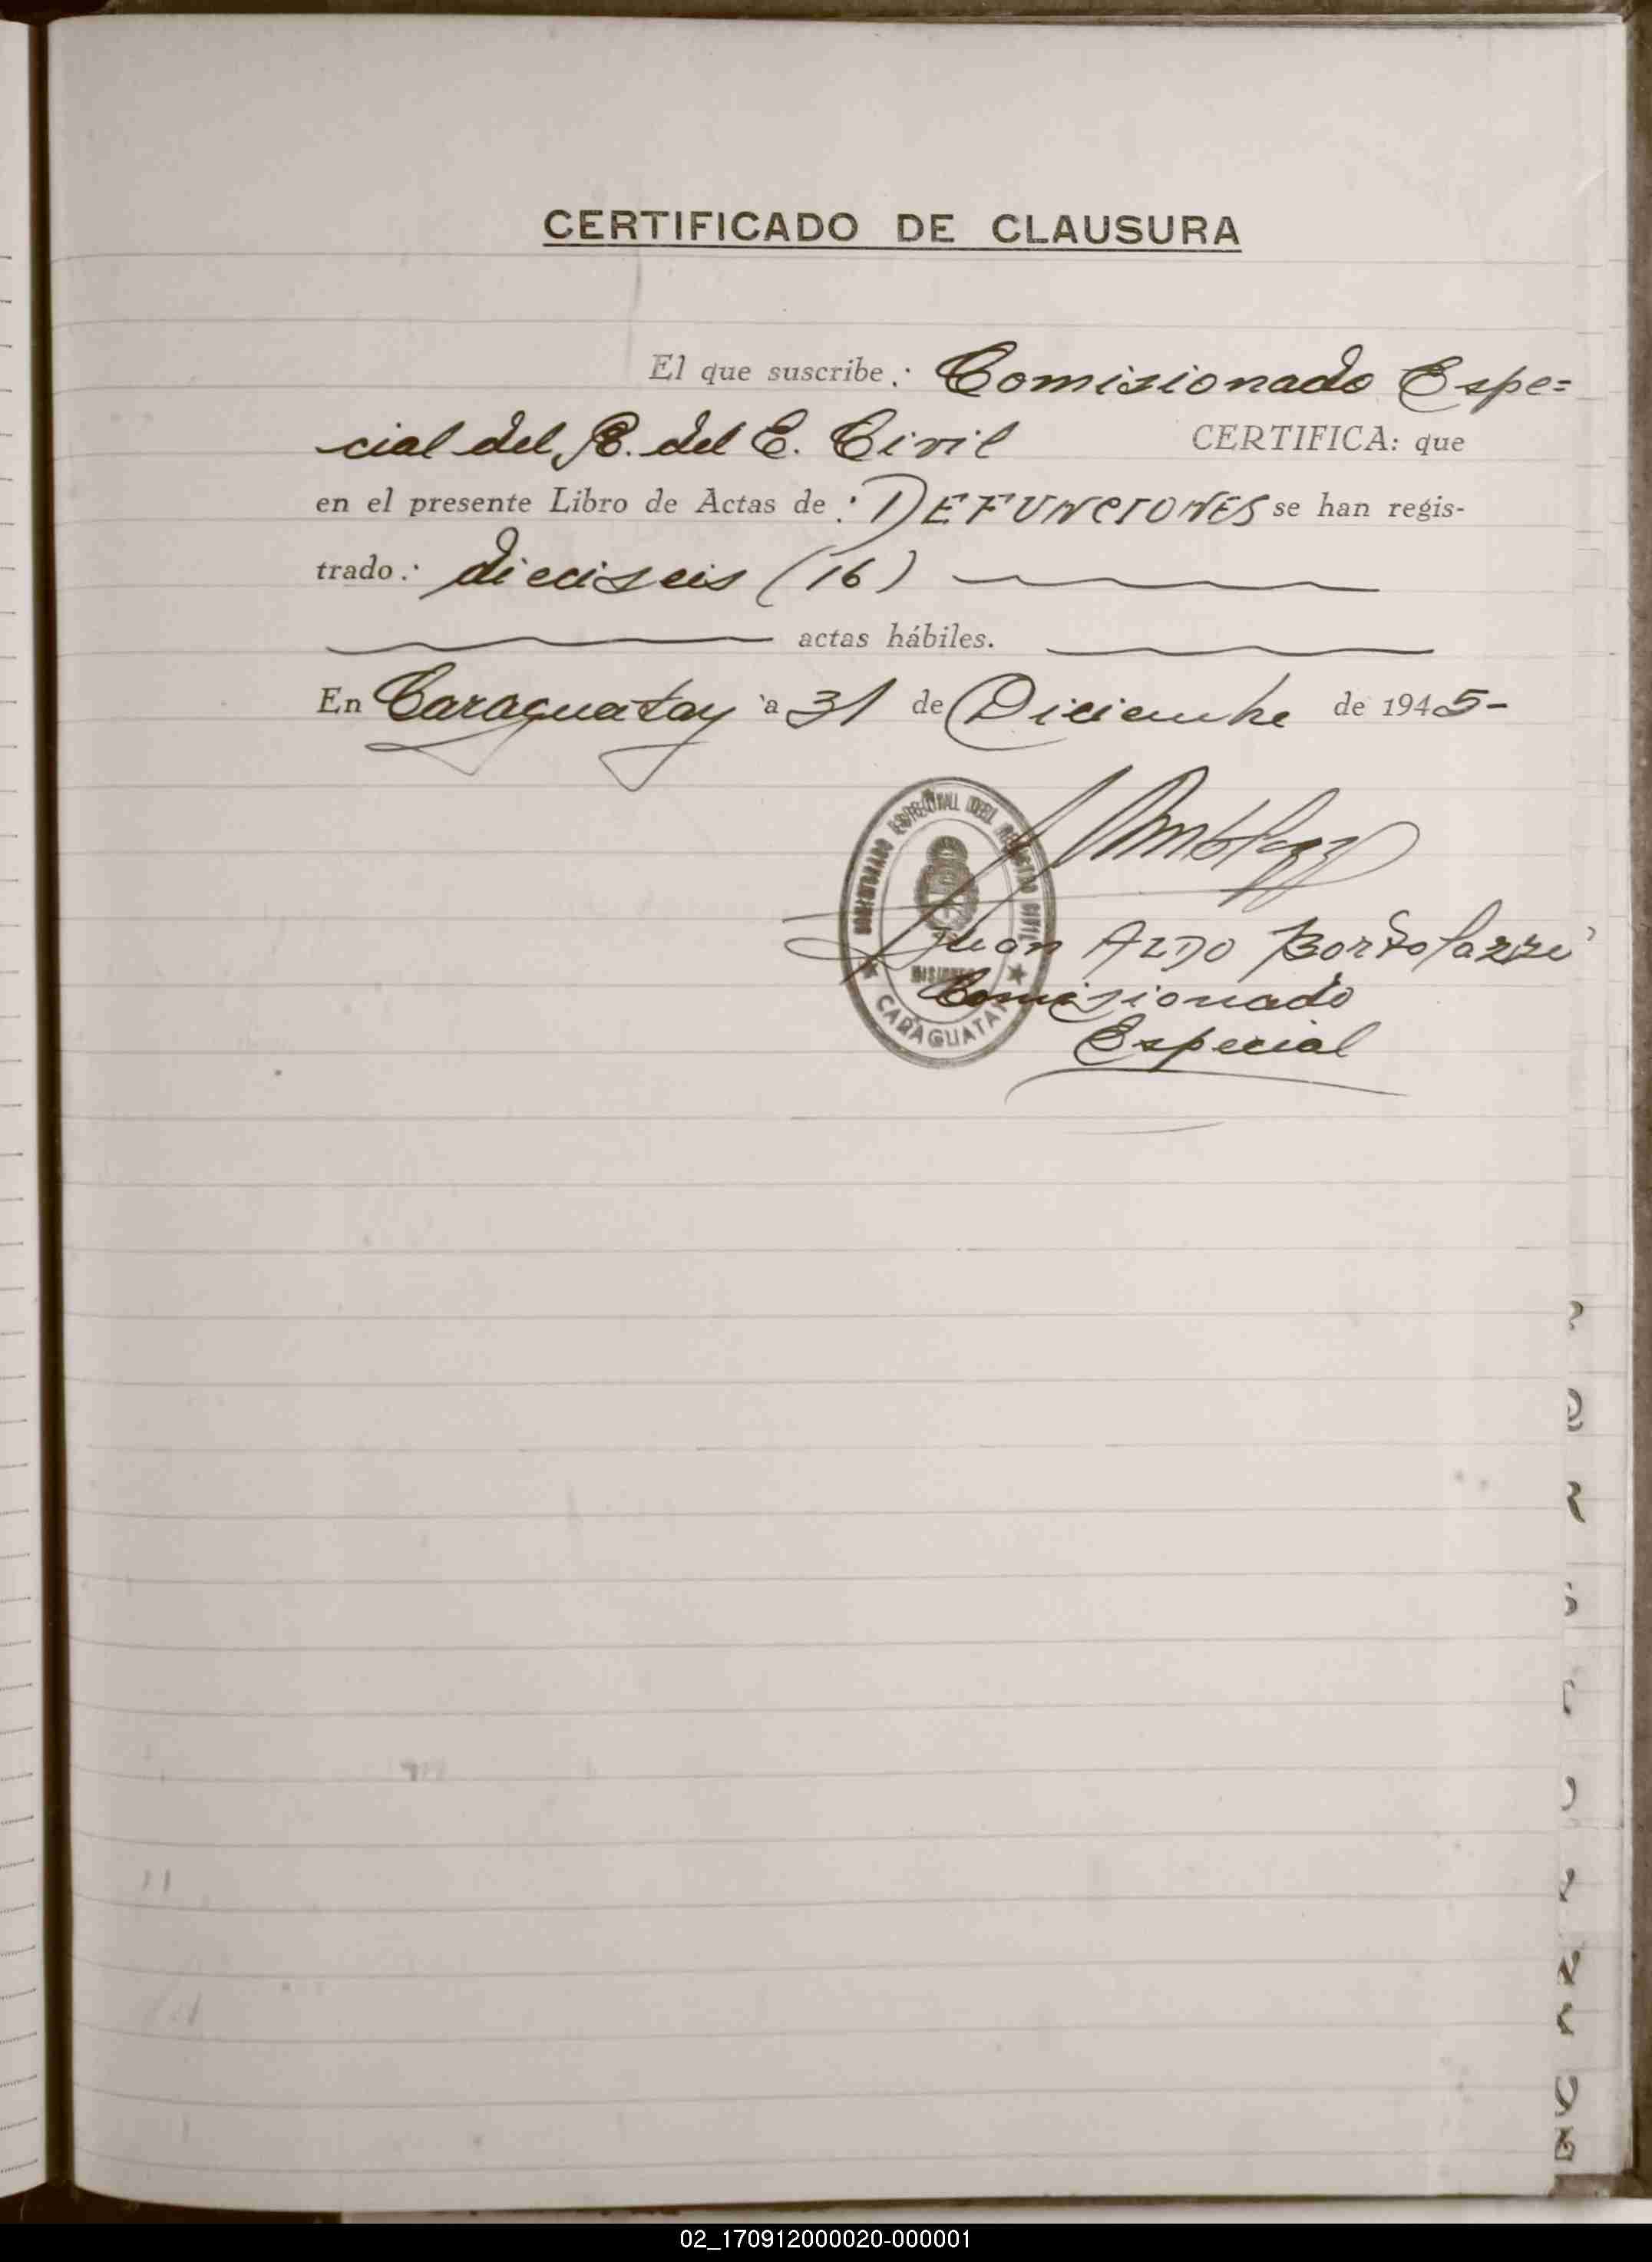 CERTIFICADO DE CLAUSURA
El que suscribe: Comisionado Espe=
cial del R. del E. Civil CERTIFICA: que
en el presente Libro de Actas de: DEFUNCIONES se han regis-
trado: dieciseis (16)
actas hábiles.
En Caraguatay a 31 de Diciembre de 1945-
COMISIONADO ESPECIAL DEL REGISTRO CIVIL
MISIONES
CARAGUATAY
Juan ALDO Bortolazzi
Comisionado
Especial
02_170912000020-000001